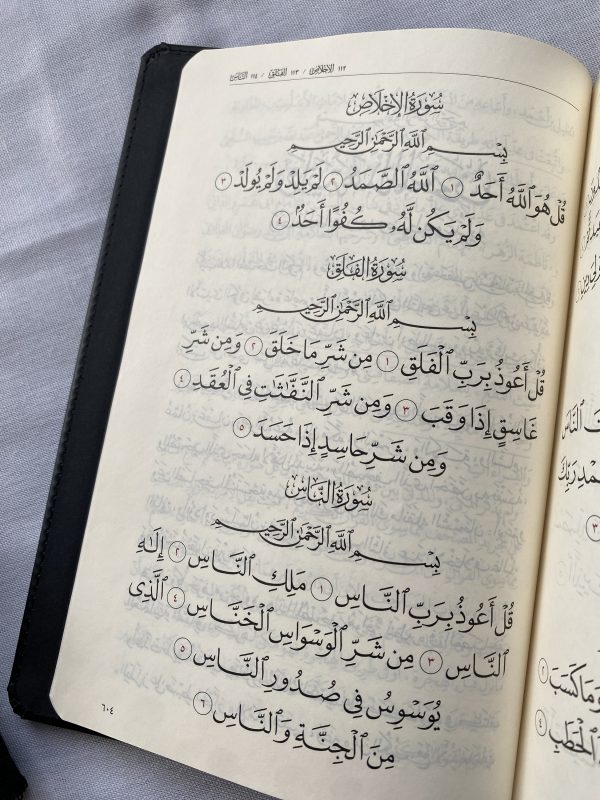 ١١٢ الإخلاص / ١١٣ الفلق / ١١٤ الناس
سُورَةُ الإِخْلَاصِ
بِسْمِ اللَّهِ الرَّحْمَٰنِ الرَّحِيمِ
قُلْ هُوَ ٱللَّهُ أَحَدٌ ١ ٱللَّهُ ٱلصَّمَدُ ٢ لَمْ يَلِدْ وَلَمْ يُولَدْ ٣
وَلَمْ يَكُن لَّهُۥ كُفُوًا أَحَدٌ ٤
سُورَةُ الفَلَقِ
بِسْمِ اللَّهِ الرَّحْمَٰنِ الرَّحِيمِ
قُلْ أَعُوذُ بِرَبِّ ٱلْفَلَقِ ١ مِن شَرِّ مَا خَلَقَ ٢ وَمِن شَرِّ
غَاسِقٍ إِذَا وَقَبَ ٣ وَمِن شَرِّ ٱلنَّفَّٰثَٰتِ فِى ٱلْعُقَدِ ٤
وَمِن شَرِّ حَاسِدٍ إِذَا حَسَدَ ٥
سُورَةُ النَّاسِ
بِسْمِ اللَّهِ الرَّحْمَٰنِ الرَّحِيمِ
قُلْ أَعُوذُ بِرَبِّ ٱلنَّاسِ ١ مَلِكِ ٱلنَّاسِ ٢ إِلَٰهِ
ٱلنَّاسِ ٣ مِن شَرِّ ٱلْوَسْوَاسِ ٱلْخَنَّاسِ ٤ ٱلَّذِى
يُوَسْوِسُ فِى صُدُورِ ٱلنَّاسِ ٥
مِنَ ٱلْجِنَّةِ وَٱلنَّاسِ ٦
٦٠٤